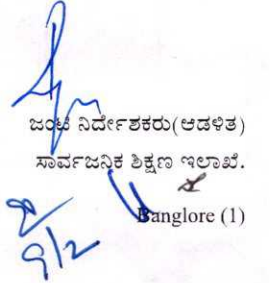 ಜಂಟಿ ನಿರ್ದೇಶಕರು(ಆಡಳಿತ)
ಸಾರ್ವಜನಿಕ ಶಿಕ್ಷಣ ಇಲಾಖೆ.
Banglore (1)
9/2